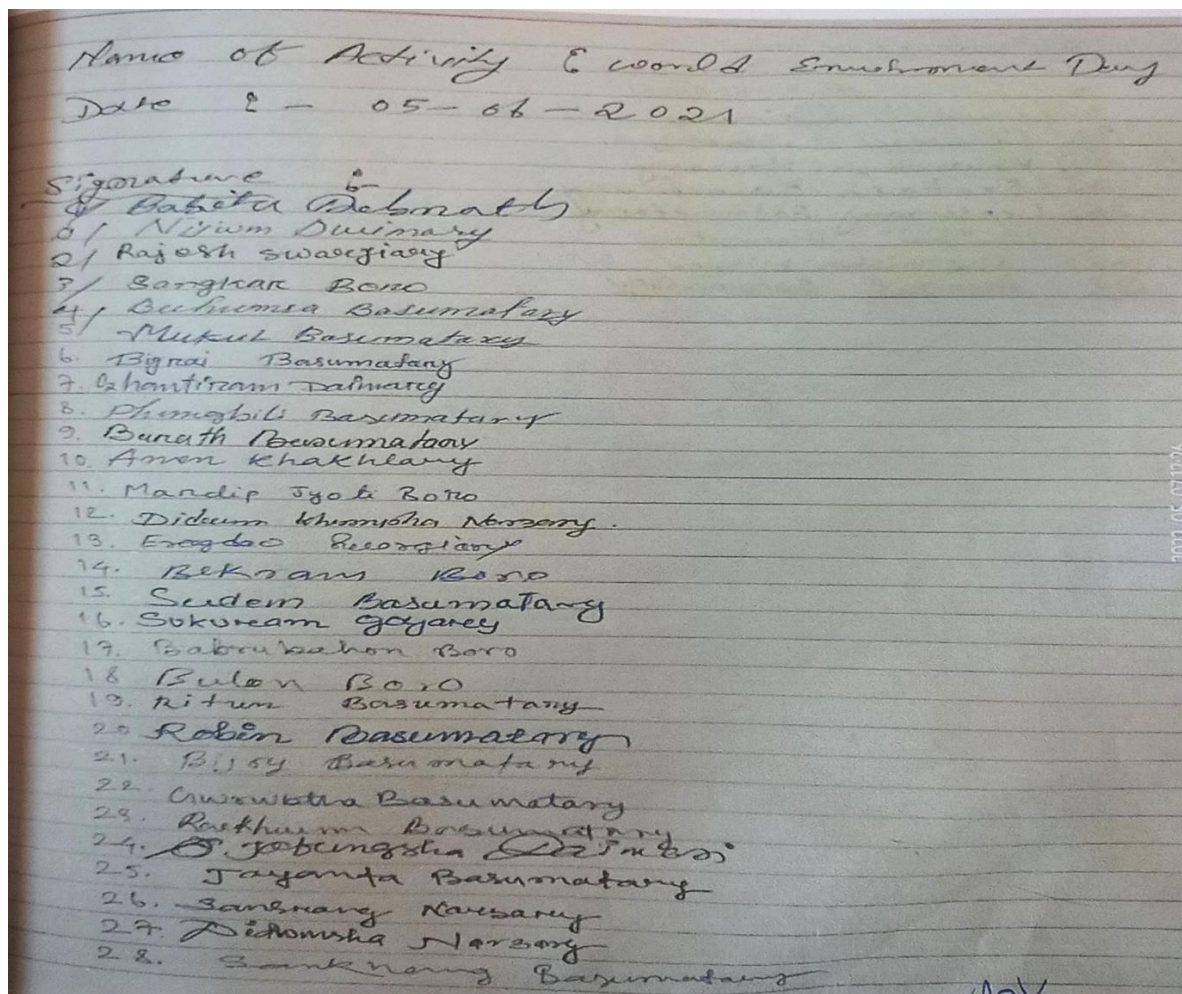 Name of Activity : World Environment Day
Date : - 05-06-2021
Signature :-
Babita Debnath
1/ Nijwm Swimary
2/ Rajesh Swargiary
3/ Sangkar Boro
4/ Basumatary
5/ Mukul Basumatary
6. Bignai Basumatary
7. Daimary
8. Basumatary
9. Banath Basumatary
10. Amon Khakhlary
11. Mandip Jyoti Boro
12. Didwm Narzary.
13.
14. Bekram Boro
15. Sudem Basumatary
16. Sukuream goyarey
17. Babrubahon Boro
18 Bulon Boro
19. Ritun Basumatary
20 Robin Basumatary
21. Bijoy Basumatary
22. Gwrwbtha Basumatary
23. Raekhwm Basumatary
24. Jebungsha
25. Jayanta Basumatary
26. Sansrang Narzary
27. Narzary
28. Basumatary